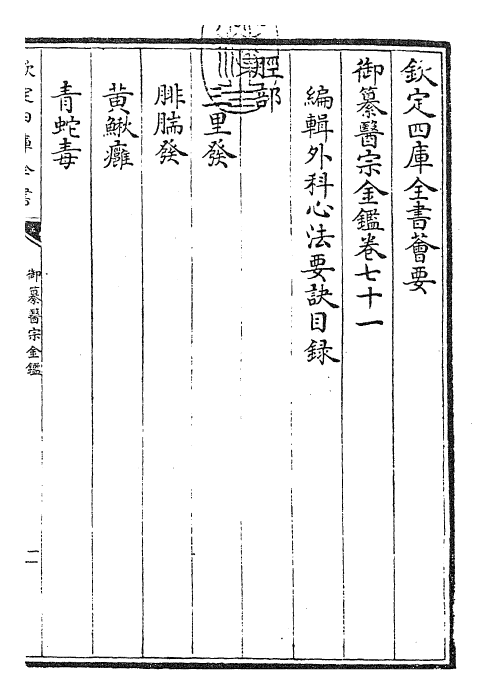 欽定四庫全書薈要
御纂醫宗金鑑卷七十一
編輯外科心法要訣目録
脛部
三里發
腓腨發
黃鰍癰
青蛇毒
欽定四庫全書
御纂醫宗金鑑